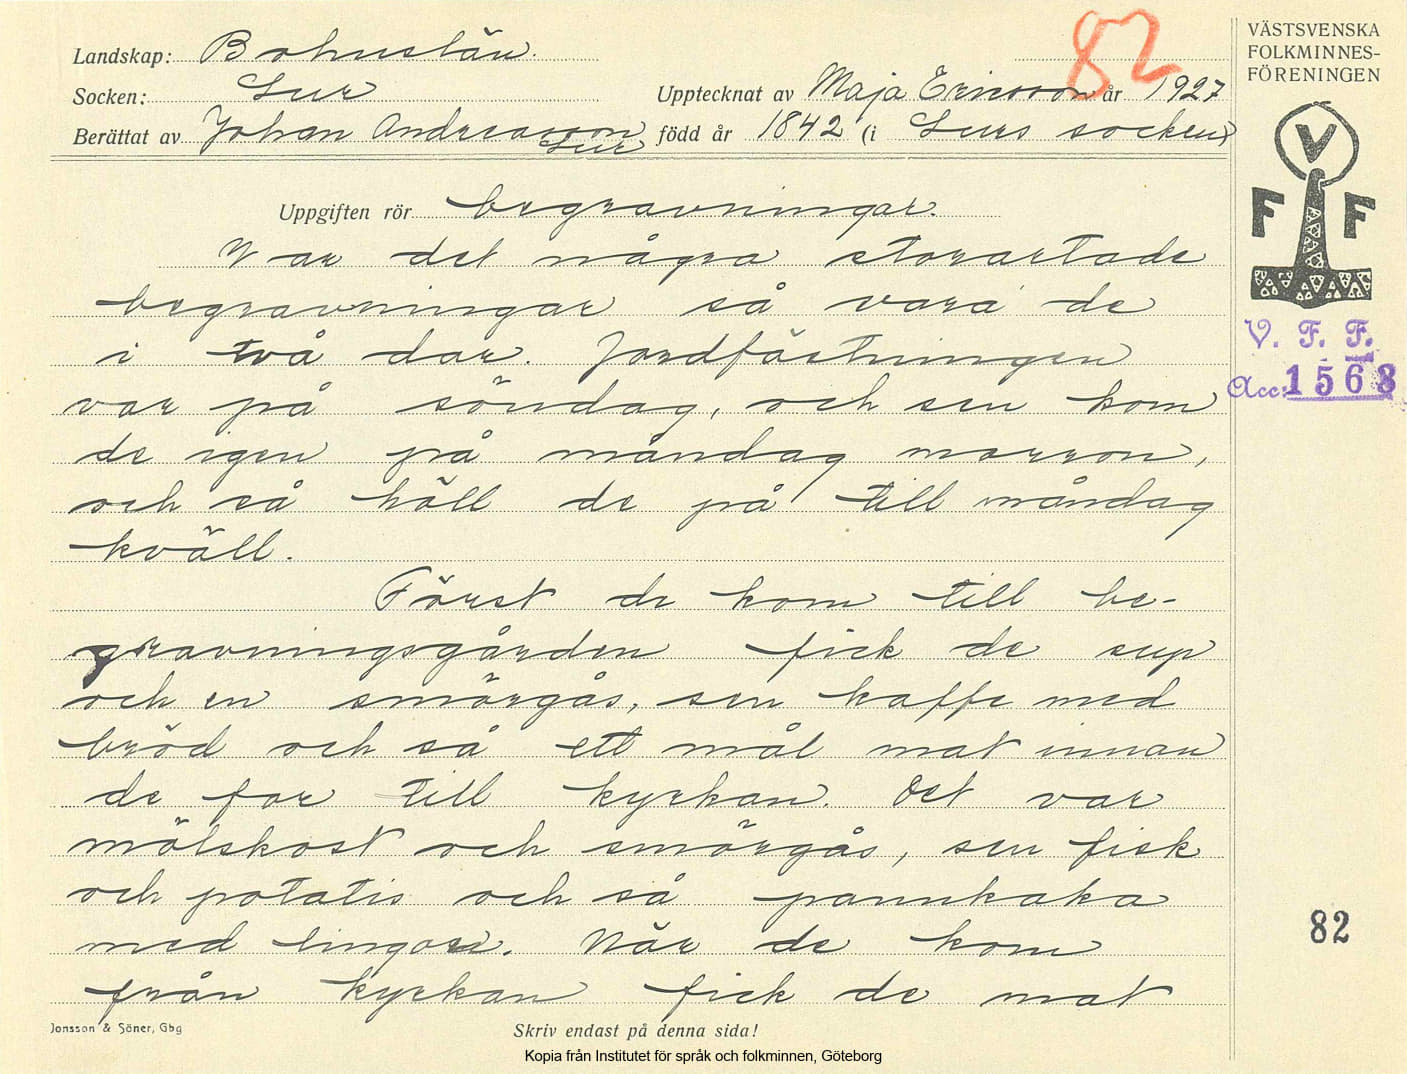 82
Landskap: Bohuslän.
Socken: Lur
Upptecknat av Maja Ericsson år 1927
Berättat av Johan Andreasson född år 1842 (i Lurs socken)
Lur
VÄSTSVENSKA
FOLKMINNES-
FÖRENINGEN
V
F F
V. F. F.
Acc: 1563
Uppgiften rör begravningar.
Var det några storartade
begravningar så vara de
i två dar. Jordfästningen
var på söndag, och sen kom
de igen på måndag morron,
och så höll de på till måndag
kväll.
Först de kom till be-
gravningsgården fick de sup
och en smörgås, sen kaffe med
bröd och så ett mål mat innan
de for till kyrkan. Det var
mölskost och smörgås, sen fisk
och potatis och så pannkaka
med lingon. När de kom
från kyrkan fick de mat
82
Jonsson & Söner, Gbg
Skriv endast på denna sida!
Kopia från Institutet för språk och folkminnen, Göteborg